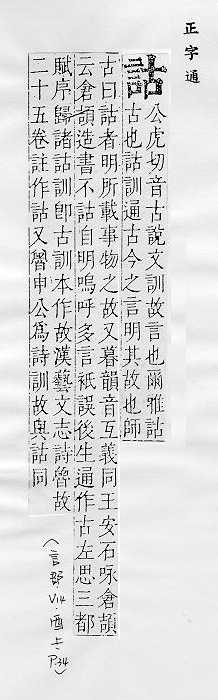 正字通
詁 公虎切音古說文訓故言也爾雅詁
古也詁訓通古今之言明其故也師
古曰詁者明所載事物之故又暮韻音互義同王安石咏倉頡
云倉頡造書不詁自明嗚呼多言衹誤後生通作古左思三都
賦序歸諸詁訓卽古訓本作故漢藝文志詩魯故
二十五卷註作詁又魯申公爲詩訓故與詁同
(言部
V14.酉上
P.34)